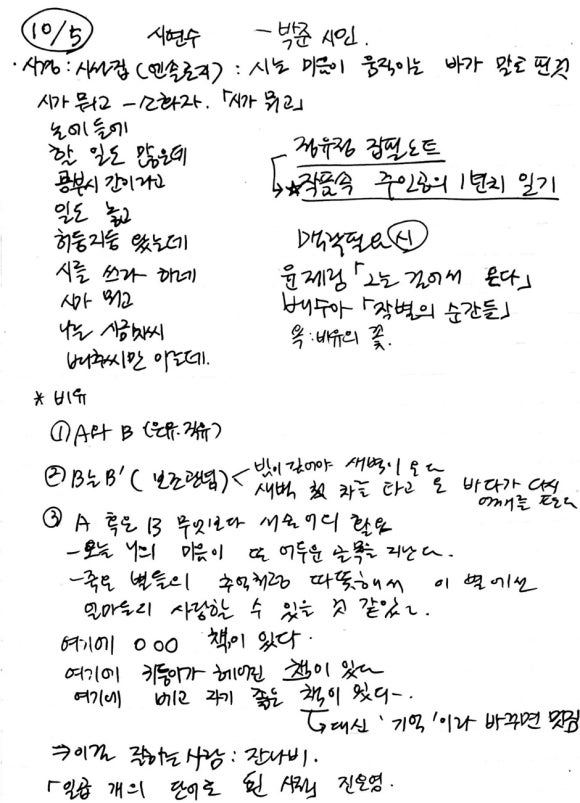 10/5 시현수 - 박준 시인.
· 시경 : 시선집 (앤솔로지) : 시는 마음이 움직이는 바가 말로 된 것
시가 뭐고 - 소화자. 「시가 뭐고」
논에 들에
할 일도 많은데
공부시간이라고
일도 놓고
허둥지둥 왔는데
시를 쓰라 하네
시가 뭐고
나는 시금치씨
배추씨만 아는데.
정유정 집필노트
→ ★ 작품속 주인공의 1년치 일기
필요 시
윤제림 「그는 걸어서 온다」
배수아 「작별의 순간들」
욕 : 비유의 꽃.
* 비유
① A와 B (은유·직유)
② B는 B' (보조관념) < 빛이 깊어야 새벽이 온다
새벽 첫 차를 타고 온 바다가 다시 어깨를 턴다
③ A 혹은 B 무엇보다 서술어의 활용
- 오늘 나의 마음이 또 어두운 골목을 지난다.
- 죽은 별들의 추억처럼 따뜻해서 이 별에선
얼마든지 사랑할 수 있을 것 같았다.
여기에 ○○○ 책이 있다.
여기에 귀퉁이가 헤어진 책이 있다
여기에 베고 자기 좋은 책이 있다-.
↳ 대신 '기억'이라 바꾸면 멋짐
⇒ 이걸 잘하는 사람 : 잔나비.
「일곱 개의 단어로 된 사전」 진은영.